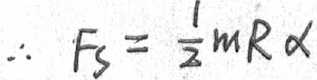 ∴ Fs = 1/2 mRα